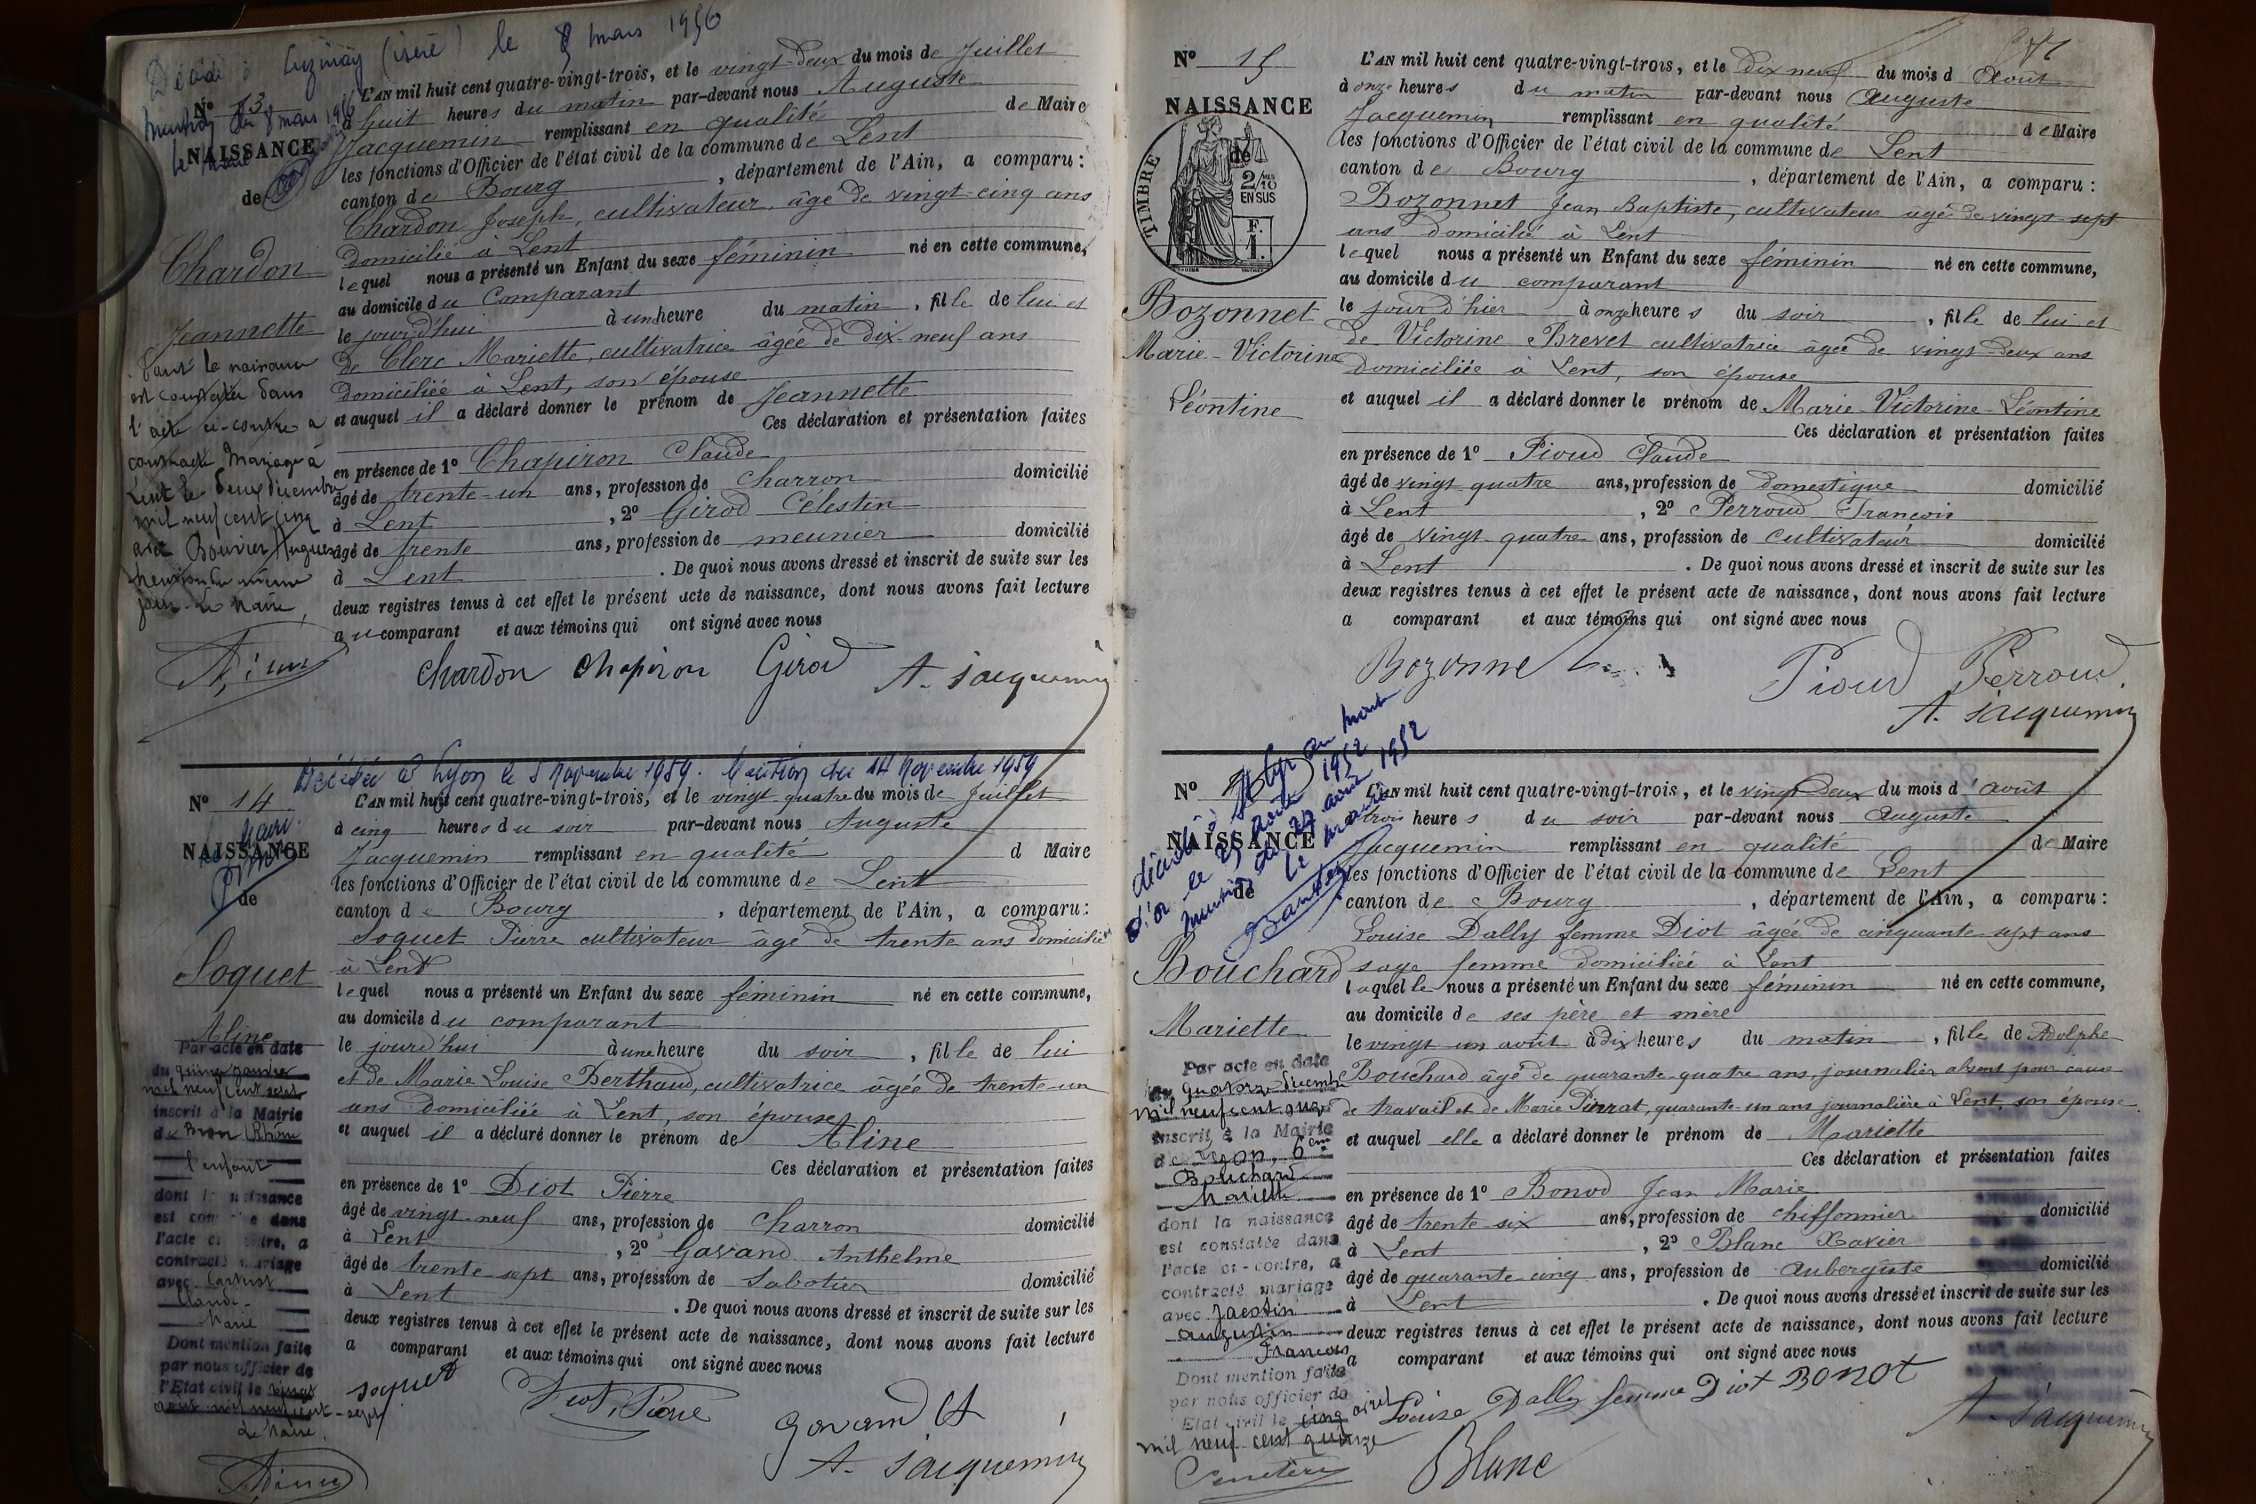 Décédée à Luzinay (isère) le 8 mars 1956
mention du 8 mars 1956
le Maire
N° 13
NAISSANCE
de
Chardon
Jeannette
dont la naissance
est constatée dans
l'acte ci-contre a
contracté mariage à
Lent le deux décembre
mil neuf cent cinq
avec Bouvier
jour. Le Maire,
L'AN mil huit cent quatre-vingt-trois, et le vingt-deux du mois de Juillet
à huit heures du matin par-devant nous Auguste
Jacquemin remplissant en qualité de Maire
les fonctions d'Officier de l'état civil de la commune de Lent
canton de Bourg, département de l'Ain, a comparu :
Chardon Joseph, cultivateur, âgé de vingt-cinq ans
domicilié à Lent
lequel nous a présenté un Enfant du sexe féminin né en cette commune,
au domicile du Comparant
le jourd'hui à une heure du matin, fille de lui et
de Clerc Mariette, cultivatrice âgée de dix-neuf ans
domiciliée à Lent, son épouse
et auquel il a déclaré donner le prénom de Jeannette
Ces déclaration et présentation faites
en présence de 1° Chapiron Claude
âgé de trente-un ans, profession de Charron domicilié
à Lent, 2° Girod Célestin
âgé de trente ans, profession de meunier domicilié
à Lent. De quoi nous avons dressé et inscrit de suite sur les
deux registres tenus à cet effet le présent acte de naissance, dont nous avons fait lecture
au comparant et aux témoins qui ont signé avec nous
Chardon Chapiron Girod A. Jacquemin
Décédée à Lyon le 5 Novembre 1959. Mention du 14 Novembre 1959
le Maire
N° 14
NAISSANCE
de
Soquet
Aline
Par acte en date
du quinze janvier
mil neuf cent sept
inscrit à la Mairie
de Bron (Rhône)
l'enfant
dont la naissance
est constatée dans
l'acte ci-contre, a
contracté mariage
avec
Claude
Marie
Dont mention faite
par nous officier de
l'Etat civil le vingt
août mil neuf cent sept
Le Maire.
L'AN mil huit cent quatre-vingt-trois, et le vingt quatre du mois de Juillet
à cinq heures du soir par-devant nous Auguste
Jacquemin remplissant en qualité d Maire
les fonctions d'Officier de l'état civil de la commune de Lent
canton de Bourg, département de l'Ain, a comparu :
Soquet Pierre cultivateur âgé de trente ans domicilié
à Lent
lequel nous a présenté un Enfant du sexe féminin né en cette commune,
au domicile du comparant
le jourd'hui à une heure du soir, fille de lui
et de Marie Louise Berthaud, cultivatrice âgée de trente-un
ans domiciliée à Lent, son épouse
et auquel il a déclaré donner le prénom de Aline
Ces déclaration et présentation faites
en présence de 1° Diot Pierre
âgé de vingt-neuf ans, profession de charron domicilié
à Lent, 2° Gavand Anthelme
âgé de trente-sept ans, profession de Sabotier domicilié
à Lent. De quoi nous avons dressé et inscrit de suite sur les
deux registres tenus à cet effet le présent acte de naissance, dont nous avons fait lecture
a comparant et aux témoins qui ont signé avec nous
Soquet Diot Pierre Gavand A
A. Jacquemin
N° 15
NAISSANCE
de
TIMBRE
2/10 EN SUS
F. 1.
Bozonnet
Marie-Victorine
Léontine
L'AN mil huit cent quatre-vingt-trois, et le dix neuf du mois d Août
à onze heures du matin par-devant nous Auguste
Jacquemin remplissant en qualité de Maire
les fonctions d'Officier de l'état civil de la commune de Lent
canton de Bourg, département de l'Ain, a comparu :
Bozonnet Jean Baptiste, cultivateur âgé de vingt sept
ans domicilié à Lent
lequel nous a présenté un Enfant du sexe féminin né en cette commune,
au domicile du comparant
le jour d'hier à onze heures du soir, fille de lui et
de Victorine Brevet cultivatrice âgée de vingt-deux ans
domiciliée à Lent, son épouse
et auquel il a déclaré donner le prénom de Marie-Victorine-Léontine
Ces déclaration et présentation faites
en présence de 1° Pioud Claude
âgé de vingt quatre ans, profession de Domestique domicilié
à Lent, 2° Perroud François
âgé de vingt-quatre ans, profession de cultivateur domicilié
à Lent. De quoi nous avons dressé et inscrit de suite sur les
deux registres tenus à cet effet le présent acte de naissance, dont nous avons fait lecture
a comparant et aux témoins qui ont signé avec nous
Bozonne Pioud Perroud
A. Jacquemin
décédée à St Cyr au mont
d'or le 1952
mention du 29 avril 1952
le maire
N°
NAISSANCE
de
Bouchard
Mariette
Par acte en date
du quatorze décembre
mil neuf cent
inscrit à la Mairie
de Lyon, 6em
Bouchard
Mariette
dont la naissance
est constatée dans
l'acte ci-contre, a
contracté mariage
avec Jacotin
Augustin
François
Dont mention faite
par nous officier de
l'Etat civil le cinq avril
mil neuf cent quinze
L'AN mil huit cent quatre-vingt-trois, et le vingt Deux du mois d'août
à trois heures du soir par-devant nous Auguste
Jacquemin remplissant en qualité de Maire
les fonctions d'Officier de l'état civil de la commune de Lent
canton de Bourg, département de l'Ain, a comparu :
Louise Dally femme Diot âgée de cinquante sept ans
sage femme domiciliée à Lent
laquelle nous a présenté un Enfant du sexe féminin né en cette commune,
au domicile de ses père et mère
le vingt un août à dix heures du matin, fille de Adolphe
Bouchard âgé de quarante-quatre ans, journalier absent pour cause
de travail et de Marie Pierrat, quarante-un ans journalière à Lent, son épouse
et auquel elle a déclaré donner le prénom de Mariette
Ces déclaration et présentation faites
en présence de 1° Bonod Jean Marie
âgé de trente six ans, profession de chiffonnier domicilié
à Lent, 2° Blanc Xavier
âgé de quarante-cinq ans, profession de Aubergiste domicilié
à Lent. De quoi nous avons dressé et inscrit de suite sur les
deux registres tenus à cet effet le présent acte de naissance, dont nous avons fait lecture
a comparant et aux témoins qui ont signé avec nous
Louise Dally femme Diot Bonot
A. Jacquemin
Blanc